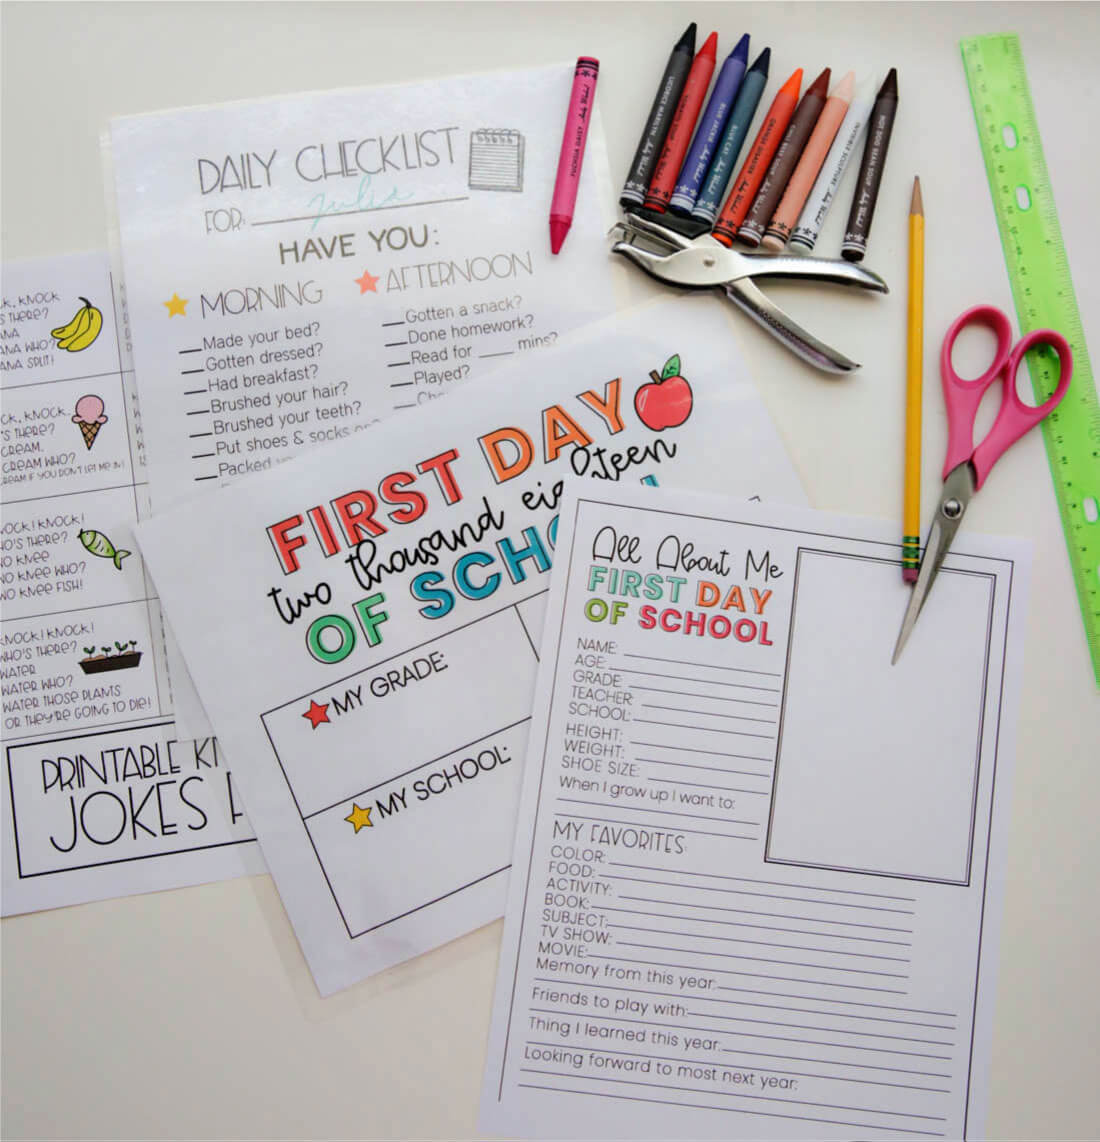 DAILY CHECKLIST
FOR: Julia
HAVE YOU:
MORNING
Made your bed?
Gotten dressed?
Had breakfast?
Brushed your hair?
Brushed your teeth?
Put shoes & socks on?
Packed
AFTERNOON
Gotten a snack?
Done homework?
Read for ____ mins?
Played?
KNOCK
THERE?
WHO?
SPLIT!
KNOCK.
THERE?
CREAM.
CREAM WHO?
CREAM IF YOU DON'T LET ME IN!
KNOCK! KNOCK!
WHO'S THERE?
NO KNEE
NO KNEE WHO?
NO KNEE FISH!
KNOCK! KNOCK!
WHO'S THERE?
WATER
WATER WHO?
WATER THOSE PLANTS
OR THEY'RE GOING TO DIE!
PRINTABLE
JOKES
FIRST DAY
two thousand eighteen
OF SCHO
MY GRADE:
MY SCHOOL:
All About Me
FIRST DAY
OF SCHOOL
NAME:
AGE:
GRADE:
TEACHER:
SCHOOL:
HEIGHT:
WEIGHT:
SHOE SIZE:
When I grow up I want to:
MY FAVORITES:
COLOR:
FOOD:
ACTIVITY:
BOOK:
SUBJECT:
TV SHOW:
MOVIE:
Memory from this year:
Friends to play with:
Thing I learned this year:
Looking forward to most next year: